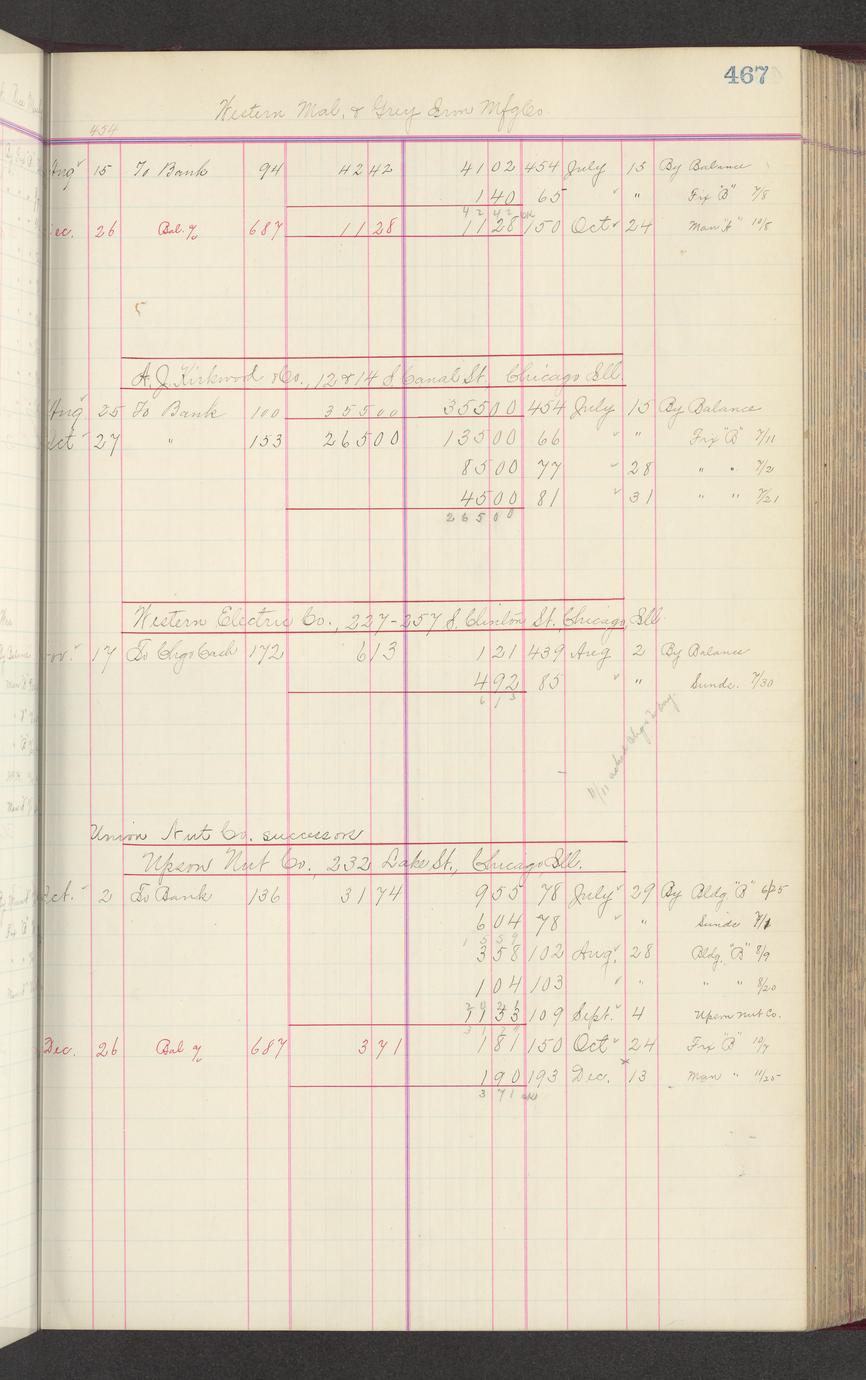 467
Western Mal. & Grey Iron Mfg Co.
454
Aug 15 To Bank 94 4242 4102 454 July 15 By Balance
140 65 " " Fix "B" 7/8
4242 OK
ec. 26 Bal. % 687 1128 1128 150 Oct 24 Man "A" 10/5
5
A. J. Kirkwood & Co., 12 & 14 S. Canal St. Chicago Ill.
Aug 25 To Bank 100 35500 35500 454 July 15 By Balance
Oct 27 " 153 26500 13500 66 " " Fix "B" 7/11
8500 77 " 28 " " 7/2
4500 81 " 31 " " 7/21
26500
Western Electric Co., 227-257 S. Clinton St. Chicago, Ill.
ov. 17 To Chgo Cash 172 613 121 439 Aug 2 By Balance
492 85 " " Sunds. 7/30
613
11/11 asked Chgo to pay.
Union Nut Co. successors
Upson Nut Co., 232 Lake St., Chicago, Ill.
Oct. 2 To Bank 136 3174 955 78 July 29 By Bldg "B" 6/25
604 78 " " Sunds 7/1
1559
358 102 Aug. 28 Bldg. "B" 8/9
104 103 " " " " 8/20
1153 109 Sept. 4 Upson Nut Co.
Dec. 26 Bal % 687 371 181 150 Oct 24 Fix "B" 10/7
190 193 Dec. 13 Man " 11/25
371 OK